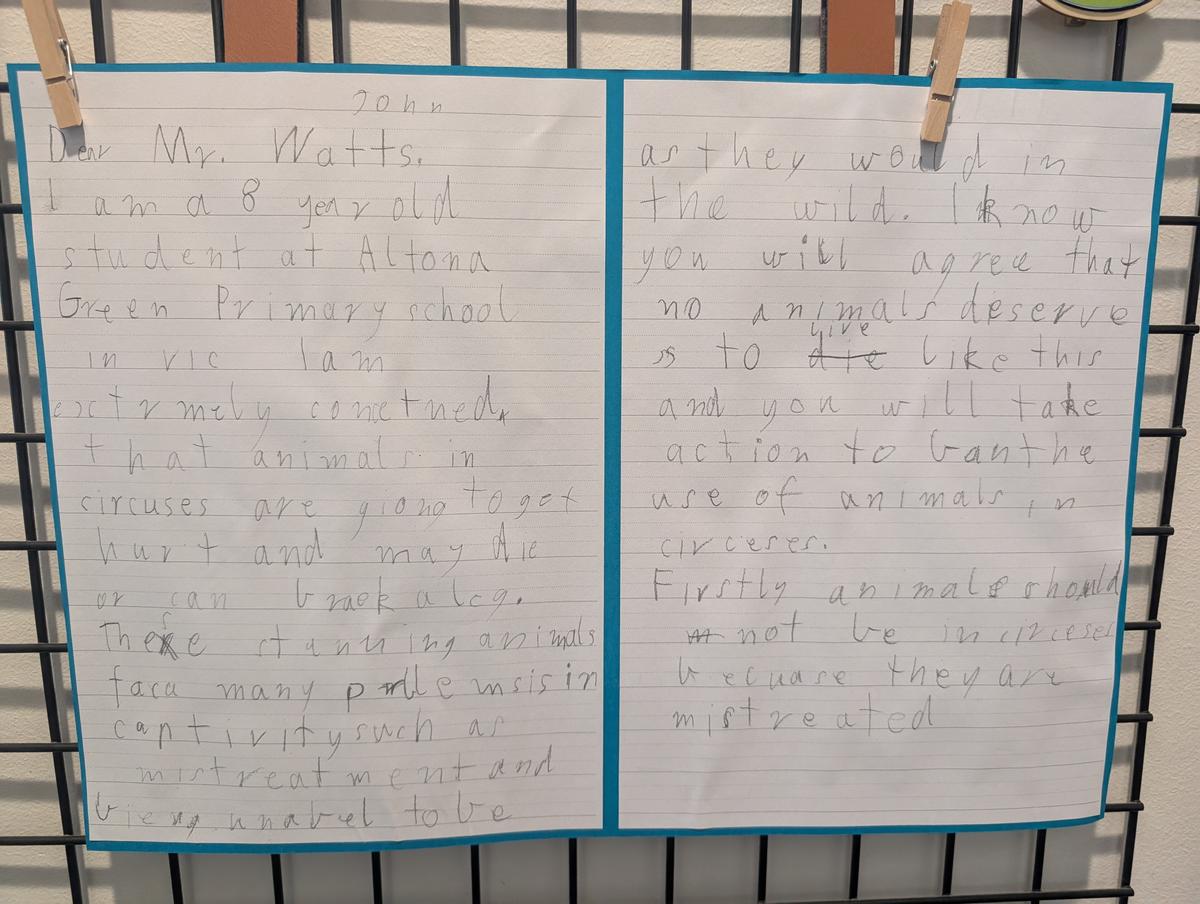 John
Dear Mr. Watts.
I am a 8 year old
student at Altona
Green Primary school
in vic I am
exctrmely concetned.
that animals in
circuses are giong to get
hurt and may die
or can braek a leg.
These stanning animals
faca many
captivity such as
mistreatment and
bieng unabel to be
as they would in
the wild. I know
you will agree that
no animals deserve
live
to die like this
and you will take
action to ban the
use of animals in
circeses.
Firstly animals should
not be in circeses
becuase they are
mistreated